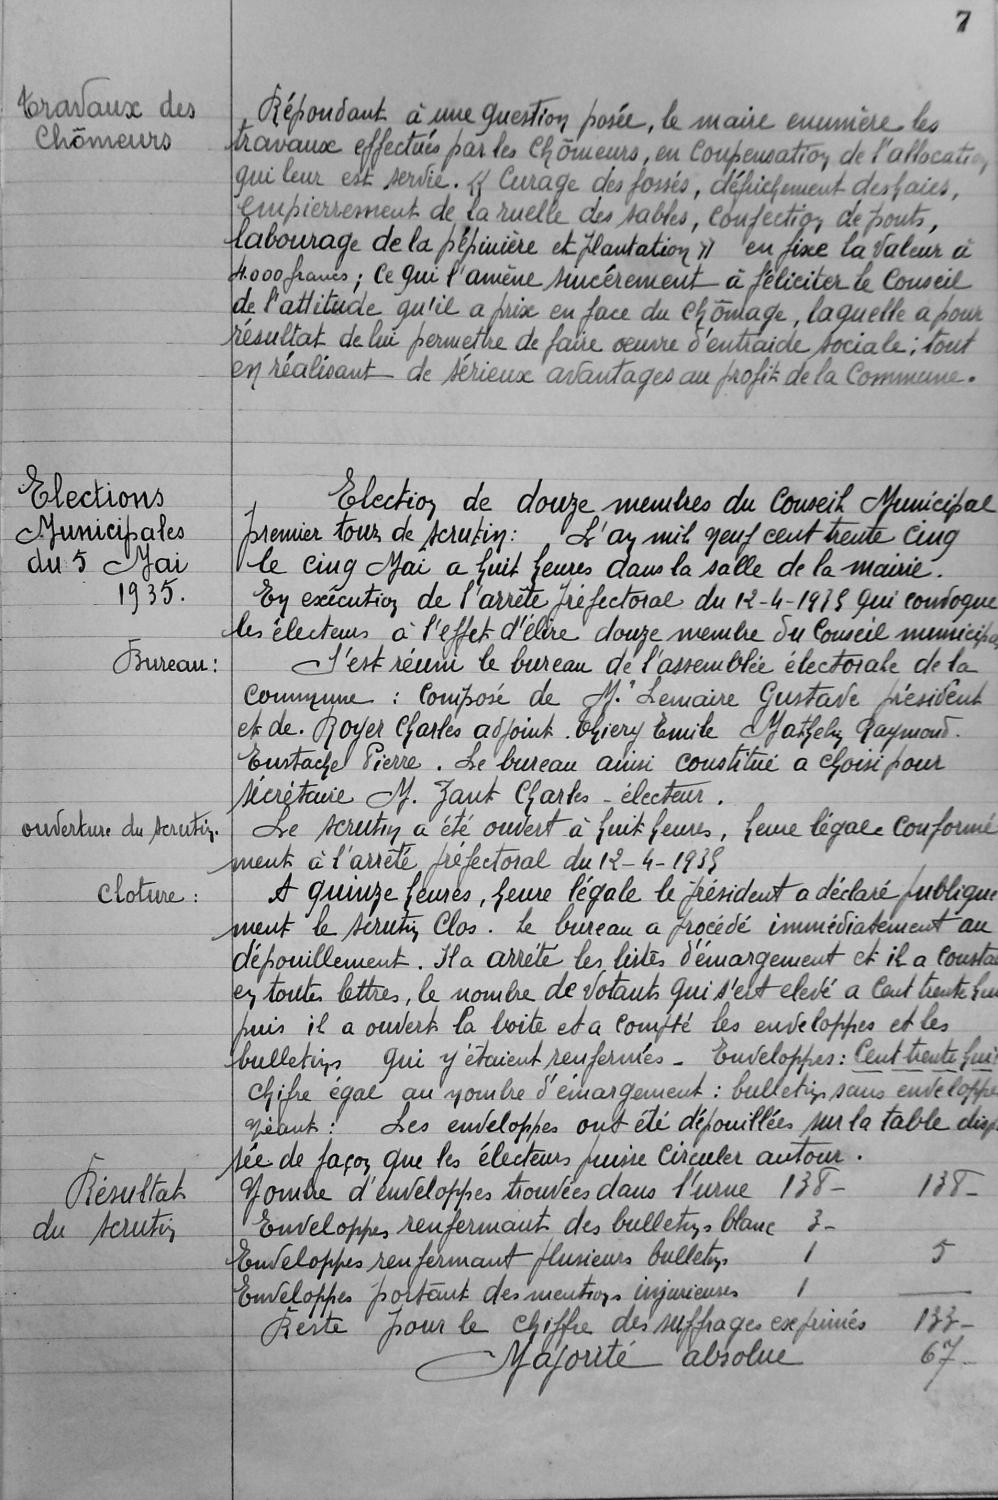 7
Travaux des
Chômeurs
Répondant à une question posée, le maire enumère les
travaux effectués par les Chômeurs, en Compensation de l'allocation
qui leur est servie. « Curage des fossés, défrichement des haies,
empierrement de la ruelle des sables, confection de ponts,
labourage de la pépinière et plantation » en fixe la valeur à
4.000 francs ; Ce qui l'amène sincérement à féliciter le Conseil
de l'attitude qu'il a prix en face du chômage, laquelle a pour
résultat de lui permettre de faire oeuvre d'entraide sociale ; tout
en réalisant de sérieux avantages au profit de la Commune.
Elections
Municipales
du 5 Mai
1935.
Election de douze membres du Conseil Municipal
premier tour de scrutin : L'an mil neuf cent trente cinq
le cinq Mai a huit heures dans la salle de la mairie.
En exécution de l'arrêté préfectoral du 12-4-1935 qui convoque
les électeurs à l'effet d'élire douze membre du Conseil municipal
Bureau :
S'est réuni le bureau de l'assemblée électorale de la
commune : Composé de M. Lemaire Gustave président
et de. Royer Charles adjoint. Thiery Emile Mathelin Raymond.
Eustache Pierre. Le bureau ainsi constitué a choisi pour
sécrétaire M. Zant Charles - électeur.
ouverture du scrutin.
Le scrutin a été ouvert à huit heures, heure légale Conformé
ment à l'arrêté préfectoral du 12-4-1935
Cloture :
A quinze heures, heure légale le président a déclaré publique
ment le scrutin Clos. Le bureau a procédé immédiatement au
dépouillement. Il a arrêté les listes d'émargement et il a Consta
en toutes lettres, le nombre de votants qui s'est elevé a Cent trente hui
puis il a ouvert la boite et a compté les enveloppes et les
bulletins qui y étaient renfermés - Enveloppes : Cent trente hui
Chifre égal au nombre d'émargement : bulletins sans enveloppe
néant : Les enveloppes ont été dépouillées sur la table disp
sée de façon que les électeurs puisse Circuler autour.
Résultat
du scrutin
Nombre d'enveloppes trouvées dans l'urne 138- 138-
Enveloppes renfermant des bulletins blanc 3-
Enveloppes renfermant plusieurs bulletins 1 5
Enveloppes portant des mentions injurieuses 1
Reste pour le chiffre des suffrages exprimés 133-
Majorité absolue 67-